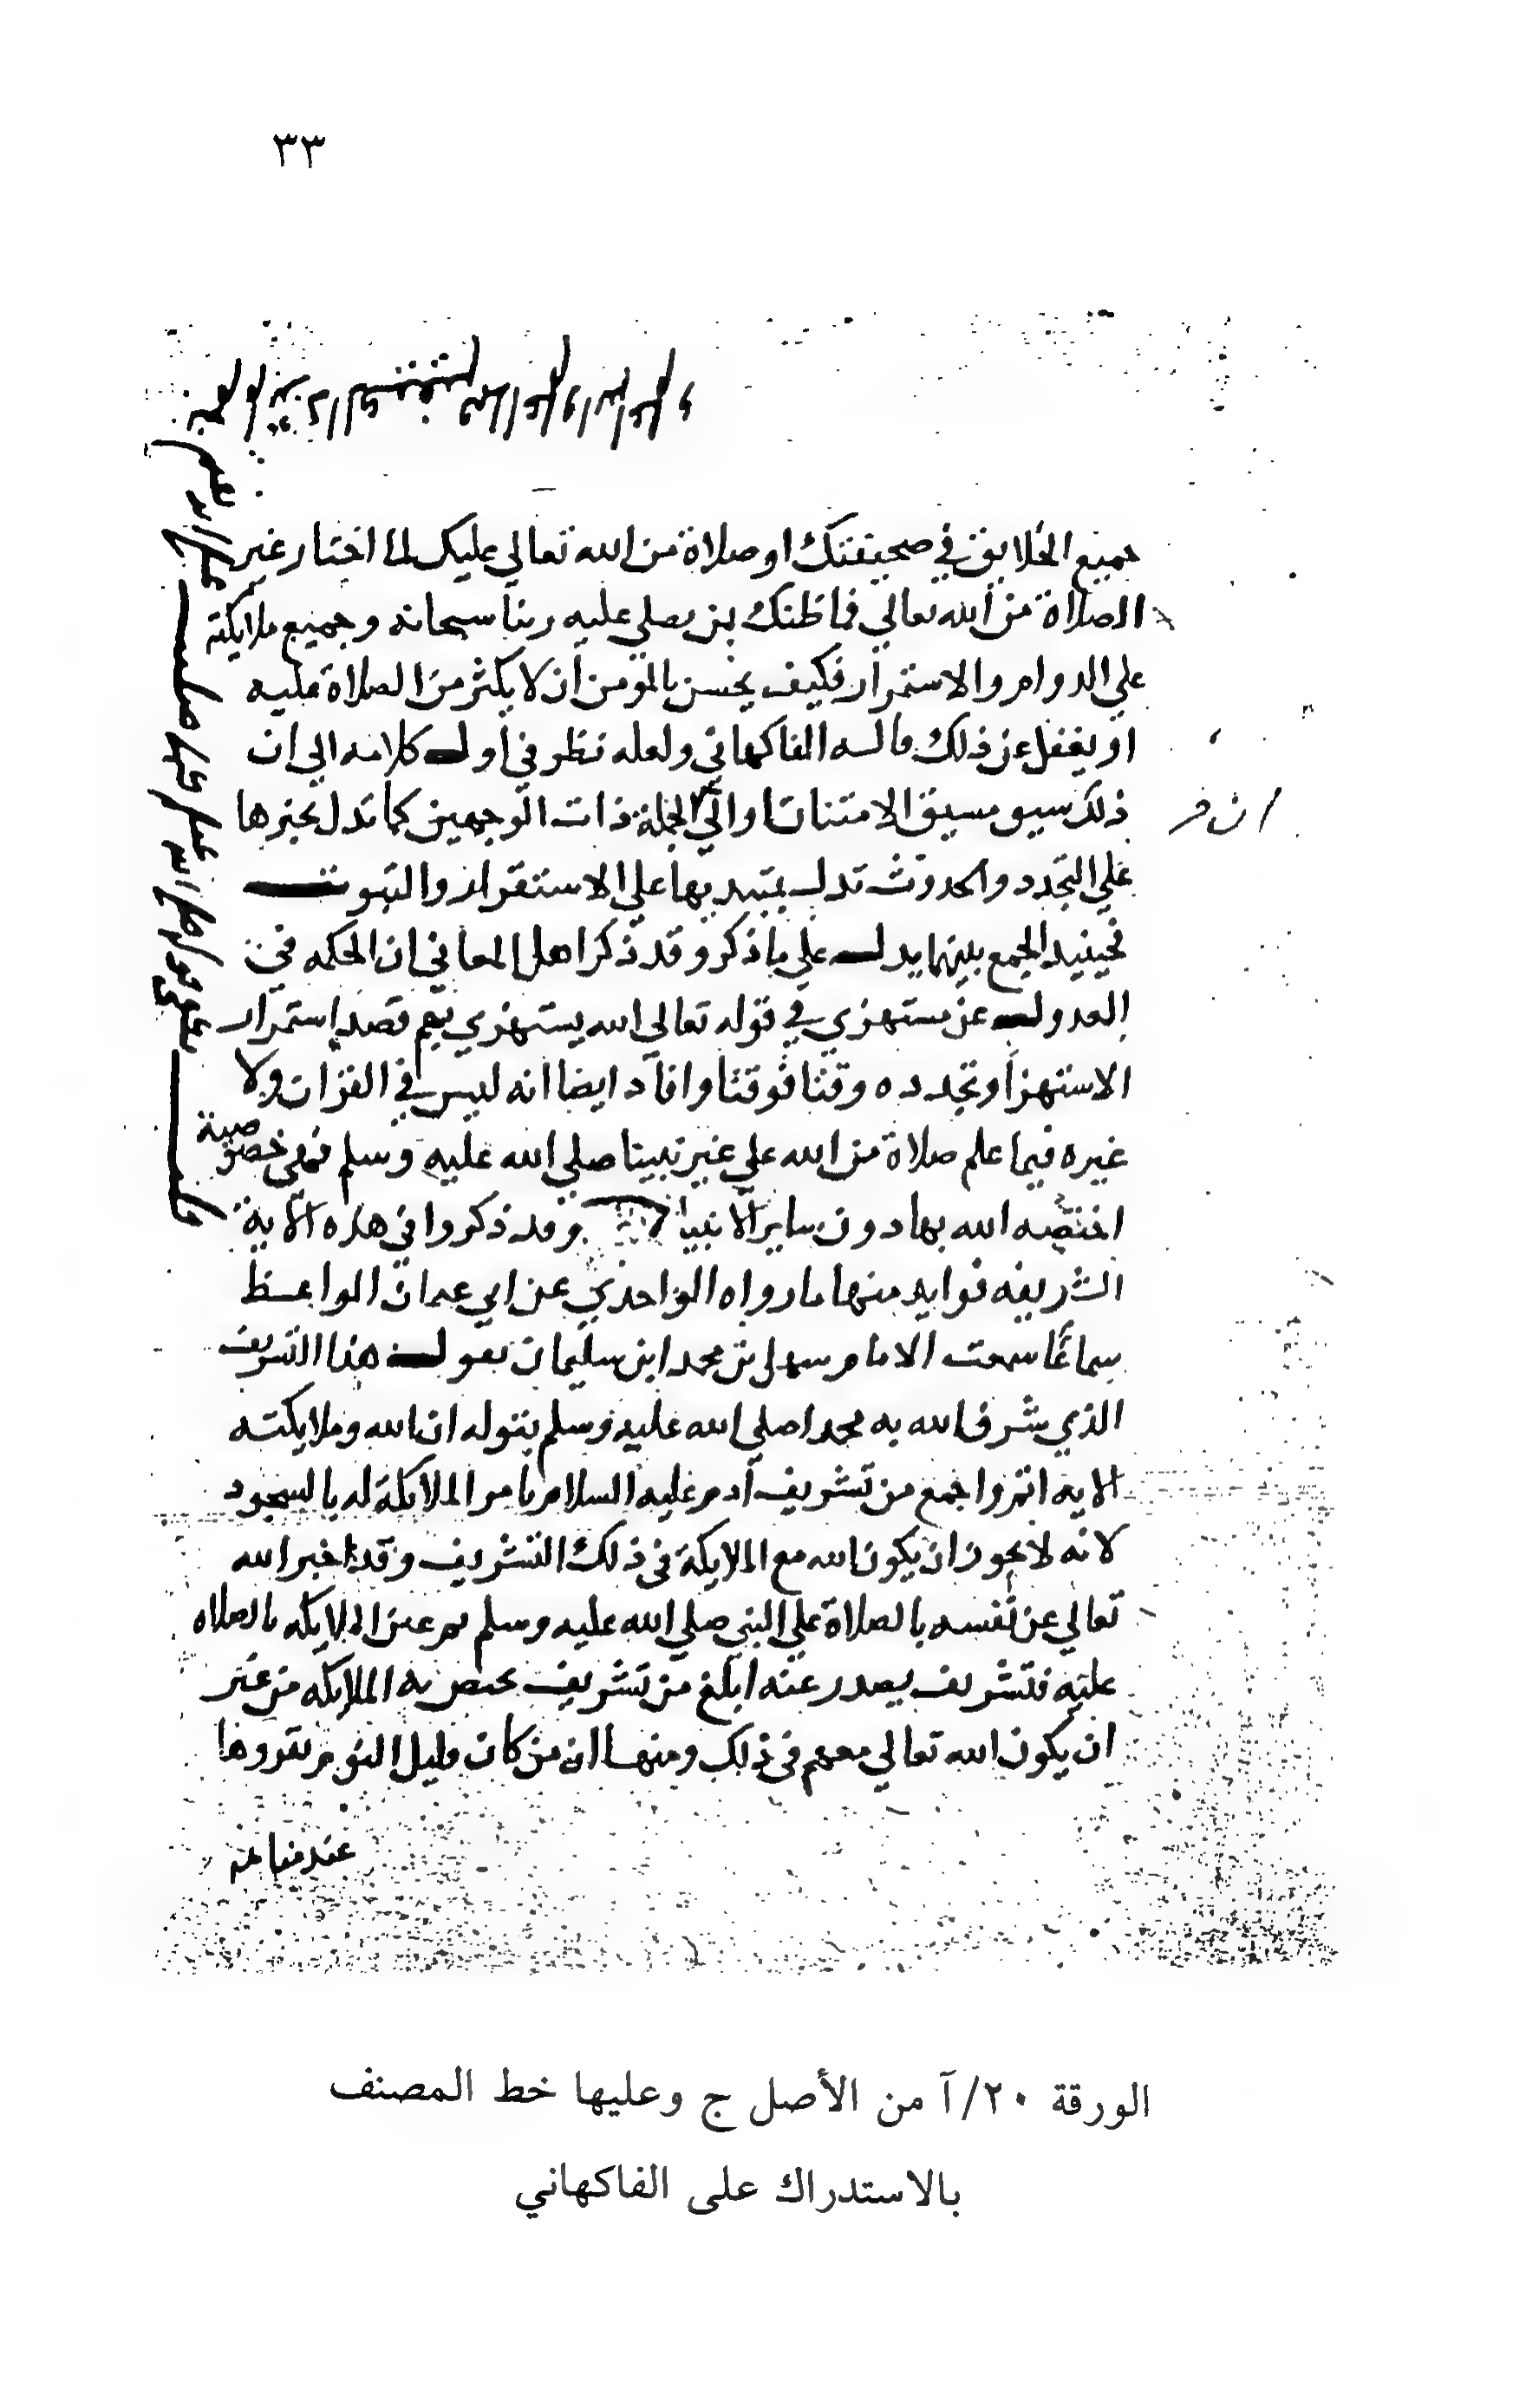 ٣٣
جميع الخلايق في صحيفتك او صلاة من الله تعالي عليك لما اختار غير
الصلاة من الله تعالي فما ظنك بمن يصلي عليه ربنا سبحانه وجميع ملايكته
علي الدوام والاستمرار فكيف يحسن بالمومن ان لا يكثر من الصلاة عليه
او يغفل عن ذلك قاله الفاكهاني ولعله نظر في اول كلامه الي ان
ذلك سيق مسيق الامتنان والي الجملة ذات الوجهين كما تدل بخبرها
علي التجدد والحدوث تدل بمبتديها علي الاستقرار والثبوت
فحينيذ الجمع بينهما يدل علي ما ذكر وقد ذكر اهل المعاني ان الحكمه في
العدول عن مستهزي في قوله تعالي الله يستهزي بهم قصد استمرار
الاستهزا وتجدده وقتا فوقتا وافاد ايضا انه ليس في القران ولا
غيره فيما علم صلاة من الله علي غير نبينا صلي الله عليه وسلم فهي خصوصية
اختصه الله بها دون ساير الانبيا وقد ذكروا في هذه الآية
الشريفه فوايد منها ما رواه الواحدي عن ابي عثمان الواعظ
سماعا سمعت الامام سهل بن محمد ابن سليمان يقول هذا التشريف
الذي شرف الله به محمدا صلي الله عليه وسلم بقوله ان الله وملايكته
الايه اتم واجمع من تشريف آدم عليه السلام بامر الملايكة له بالسجود
لانه لا يجوز ان يكون الله مع الملايكة في ذلك التشريف وقد اخبر الله
تعالي عن نفسه بالصلاة علي النبي صلي الله عليه وسلم ثم عن الملايكه بالصلاه
عليه فتشريف يصدر عنه ابلغ من تشريف تختص به الملايكه من غير
ان يكون الله تعالي معهم في ذلك ومنها ان من كان قليل النوم يقروها
عند منامه
الورقة ٢٠/آ من الأصل ج وعليها خط المصنف
بالاستدراك على الفاكهاني